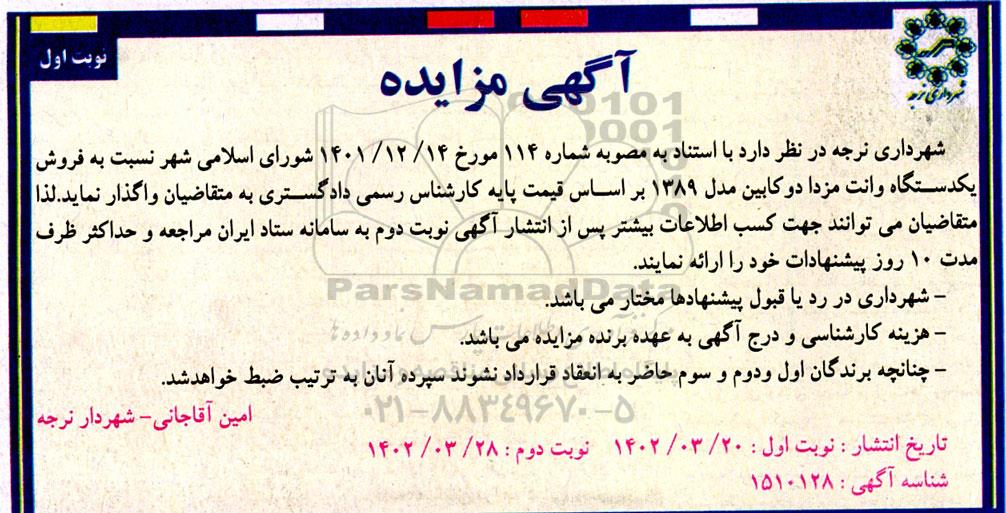 نوبت اول
شهرداری نرجه
آگهی مزایده
شهرداری نرجه در نظر دارد با استناد به مصوبه شماره ۱۱۴ مورخ ۱۴۰۱/۱۲/۱۴ شورای اسلامی شهر نسبت به فروش
یکدستگاه وانت مزدا دوکابین مدل ۱۳۸۹ بر اساس قیمت پایه کارشناس رسمی دادگستری به متقاضیان واگذار نماید.لذا
متقاضیان می توانند جهت کسب اطلاعات بیشتر پس از انتشار آگهی نوبت دوم به سامانه ستاد ایران مراجعه و حداکثر ظرف
مدت ۱۰ روز پیشنهادات خود را ارائه نمایند.
ParsNamadData
– شهرداری در رد یا قبول پیشنهادها مختار می باشد.
– هزینه کارشناسی و درج آگهی به عهده برنده مزایده می باشد.
– چنانچه برندگان اول ودوم و سوم حاضر به انعقاد قرارداد نشوند سپرده آنان به ترتیب ضبط خواهدشد.
۰۲۱-۸۸۳۴۹۶۷۰-۵
امین آقاجانی– شهردار نرجه
تاریخ انتشار : نوبت اول : ۱۴۰۲/۰۳/۲۰ نوبت دوم : ۱۴۰۲/۰۳/۲۸
شناسه آگهی : ۱۵۱۰۱۲۸